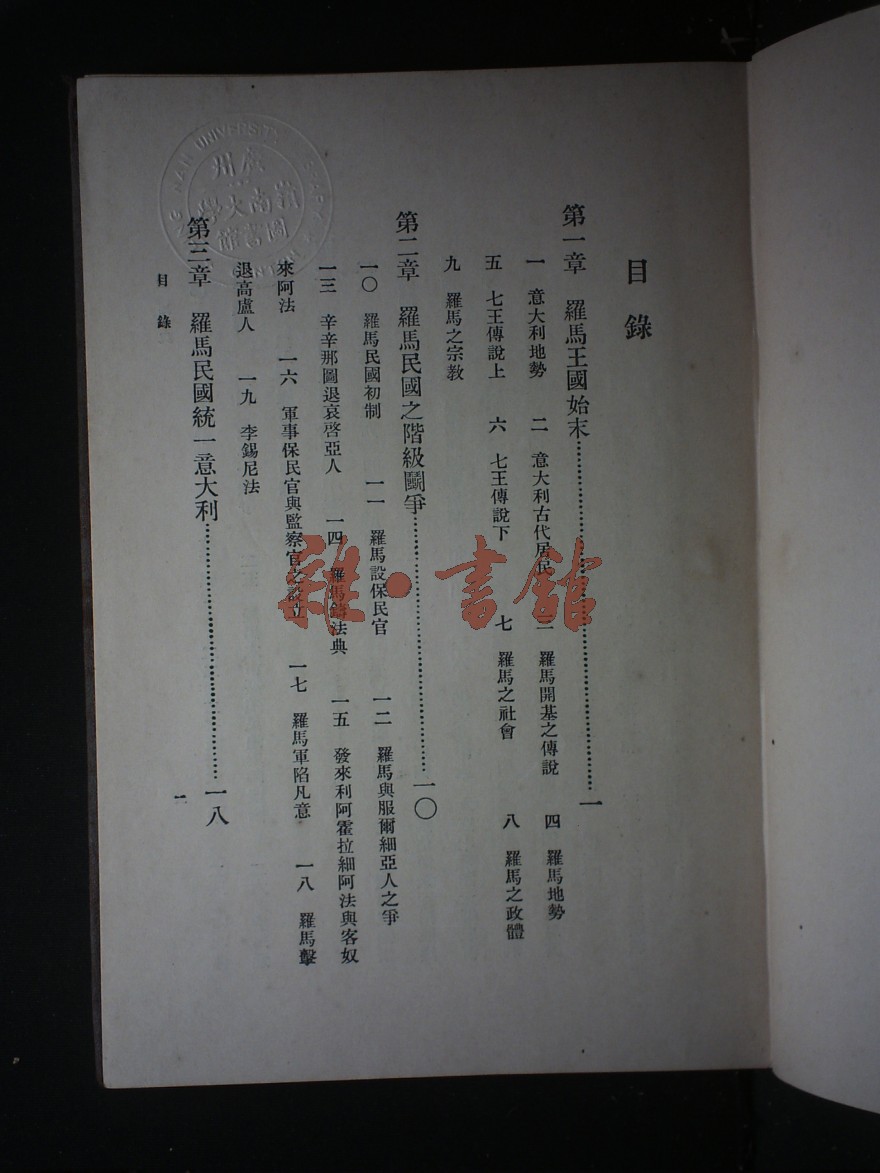 目錄
第一章　羅馬王國始末…………一
一　意大利地勢　二　意大利古代居民　三　羅馬開基之傳說　四　羅馬地勢
五　七王傳說上　六　七王傳說下　七　羅馬之社會　八　羅馬之政體
九　羅馬之宗教
第二章　羅馬民國之階級鬭爭…………一〇
一〇　羅馬民國初制　一一　羅馬設保民官　一二　羅馬與服爾細亞人之爭
一三　辛辛那圖退哀啓亞人　一四　羅馬鑄法典　一五　發來利阿霍拉細阿法與客奴
來阿法　一六　軍事保民官與監察官之設立　一七　羅馬軍陷凡意　一八　羅馬擊
退高盧人　一九　李錫尼法
第三章　羅馬民國統一意大利…………一八
目錄
一
雜·書館
廣州
嶺南大學
圖書館
NAN UNIVERSITY